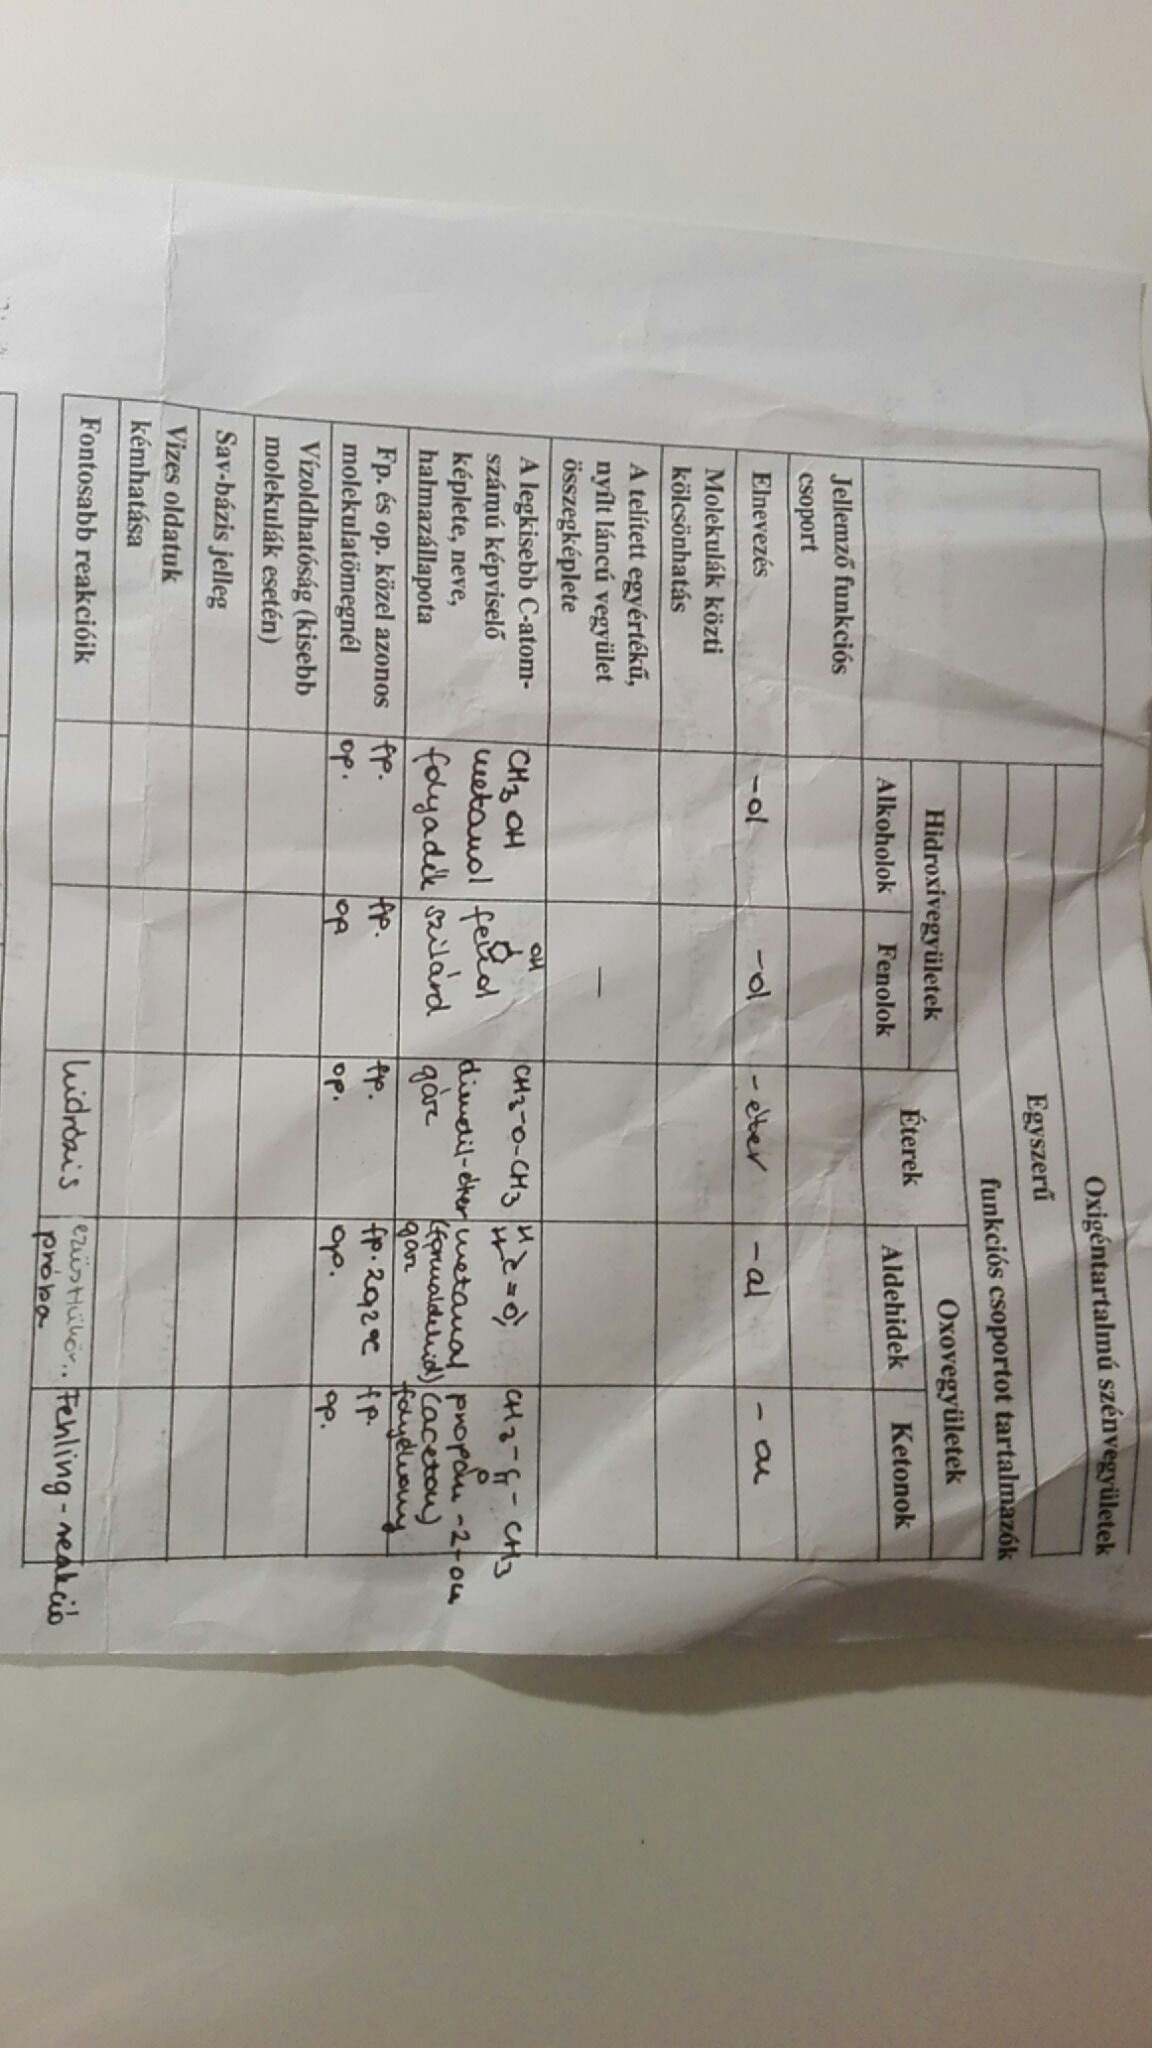 Oxigéntartalmú szénvegyületek
Egyszerű
funkciós csoportot tartalmazók
Hidroxivegyületek
Éterek
Oxovegyületek
Alkoholok
Fenolok
Aldehidek
Ketonok
Jellemző funkciós
csoport
Elnevezés
-ol
-ol
-éter
-al
-on
Molekulák közti
kölcsönhatás
A telített egyértékű,
nyílt láncú vegyület
összegképlete
—
A legkisebb C-atom-
számú képviselő
képlete, neve,
halmazállapota
CH3OH
metanol
folyadék
OH
fenol
szilárd
CH3-O-CH3
dimetil-éter
gáz
H
H C=O
metanal
(formaldehid)
gáz
CH3-C-CH3
O
propán-2-on
(aceton)
folyékony
Fp. és op. közel azonos
molekulatömegnél
fp.
op.
fp.
op
fp.
op.
fp. 292°C
op.
fp.
op.
Vízoldhatóság (kisebb
molekulák esetén)
Sav-bázis jelleg
Vizes oldatuk
kémhatása
Fontosabb reakcióik
hidrózis
ezüsttükör..
próba
Fehling-reakció